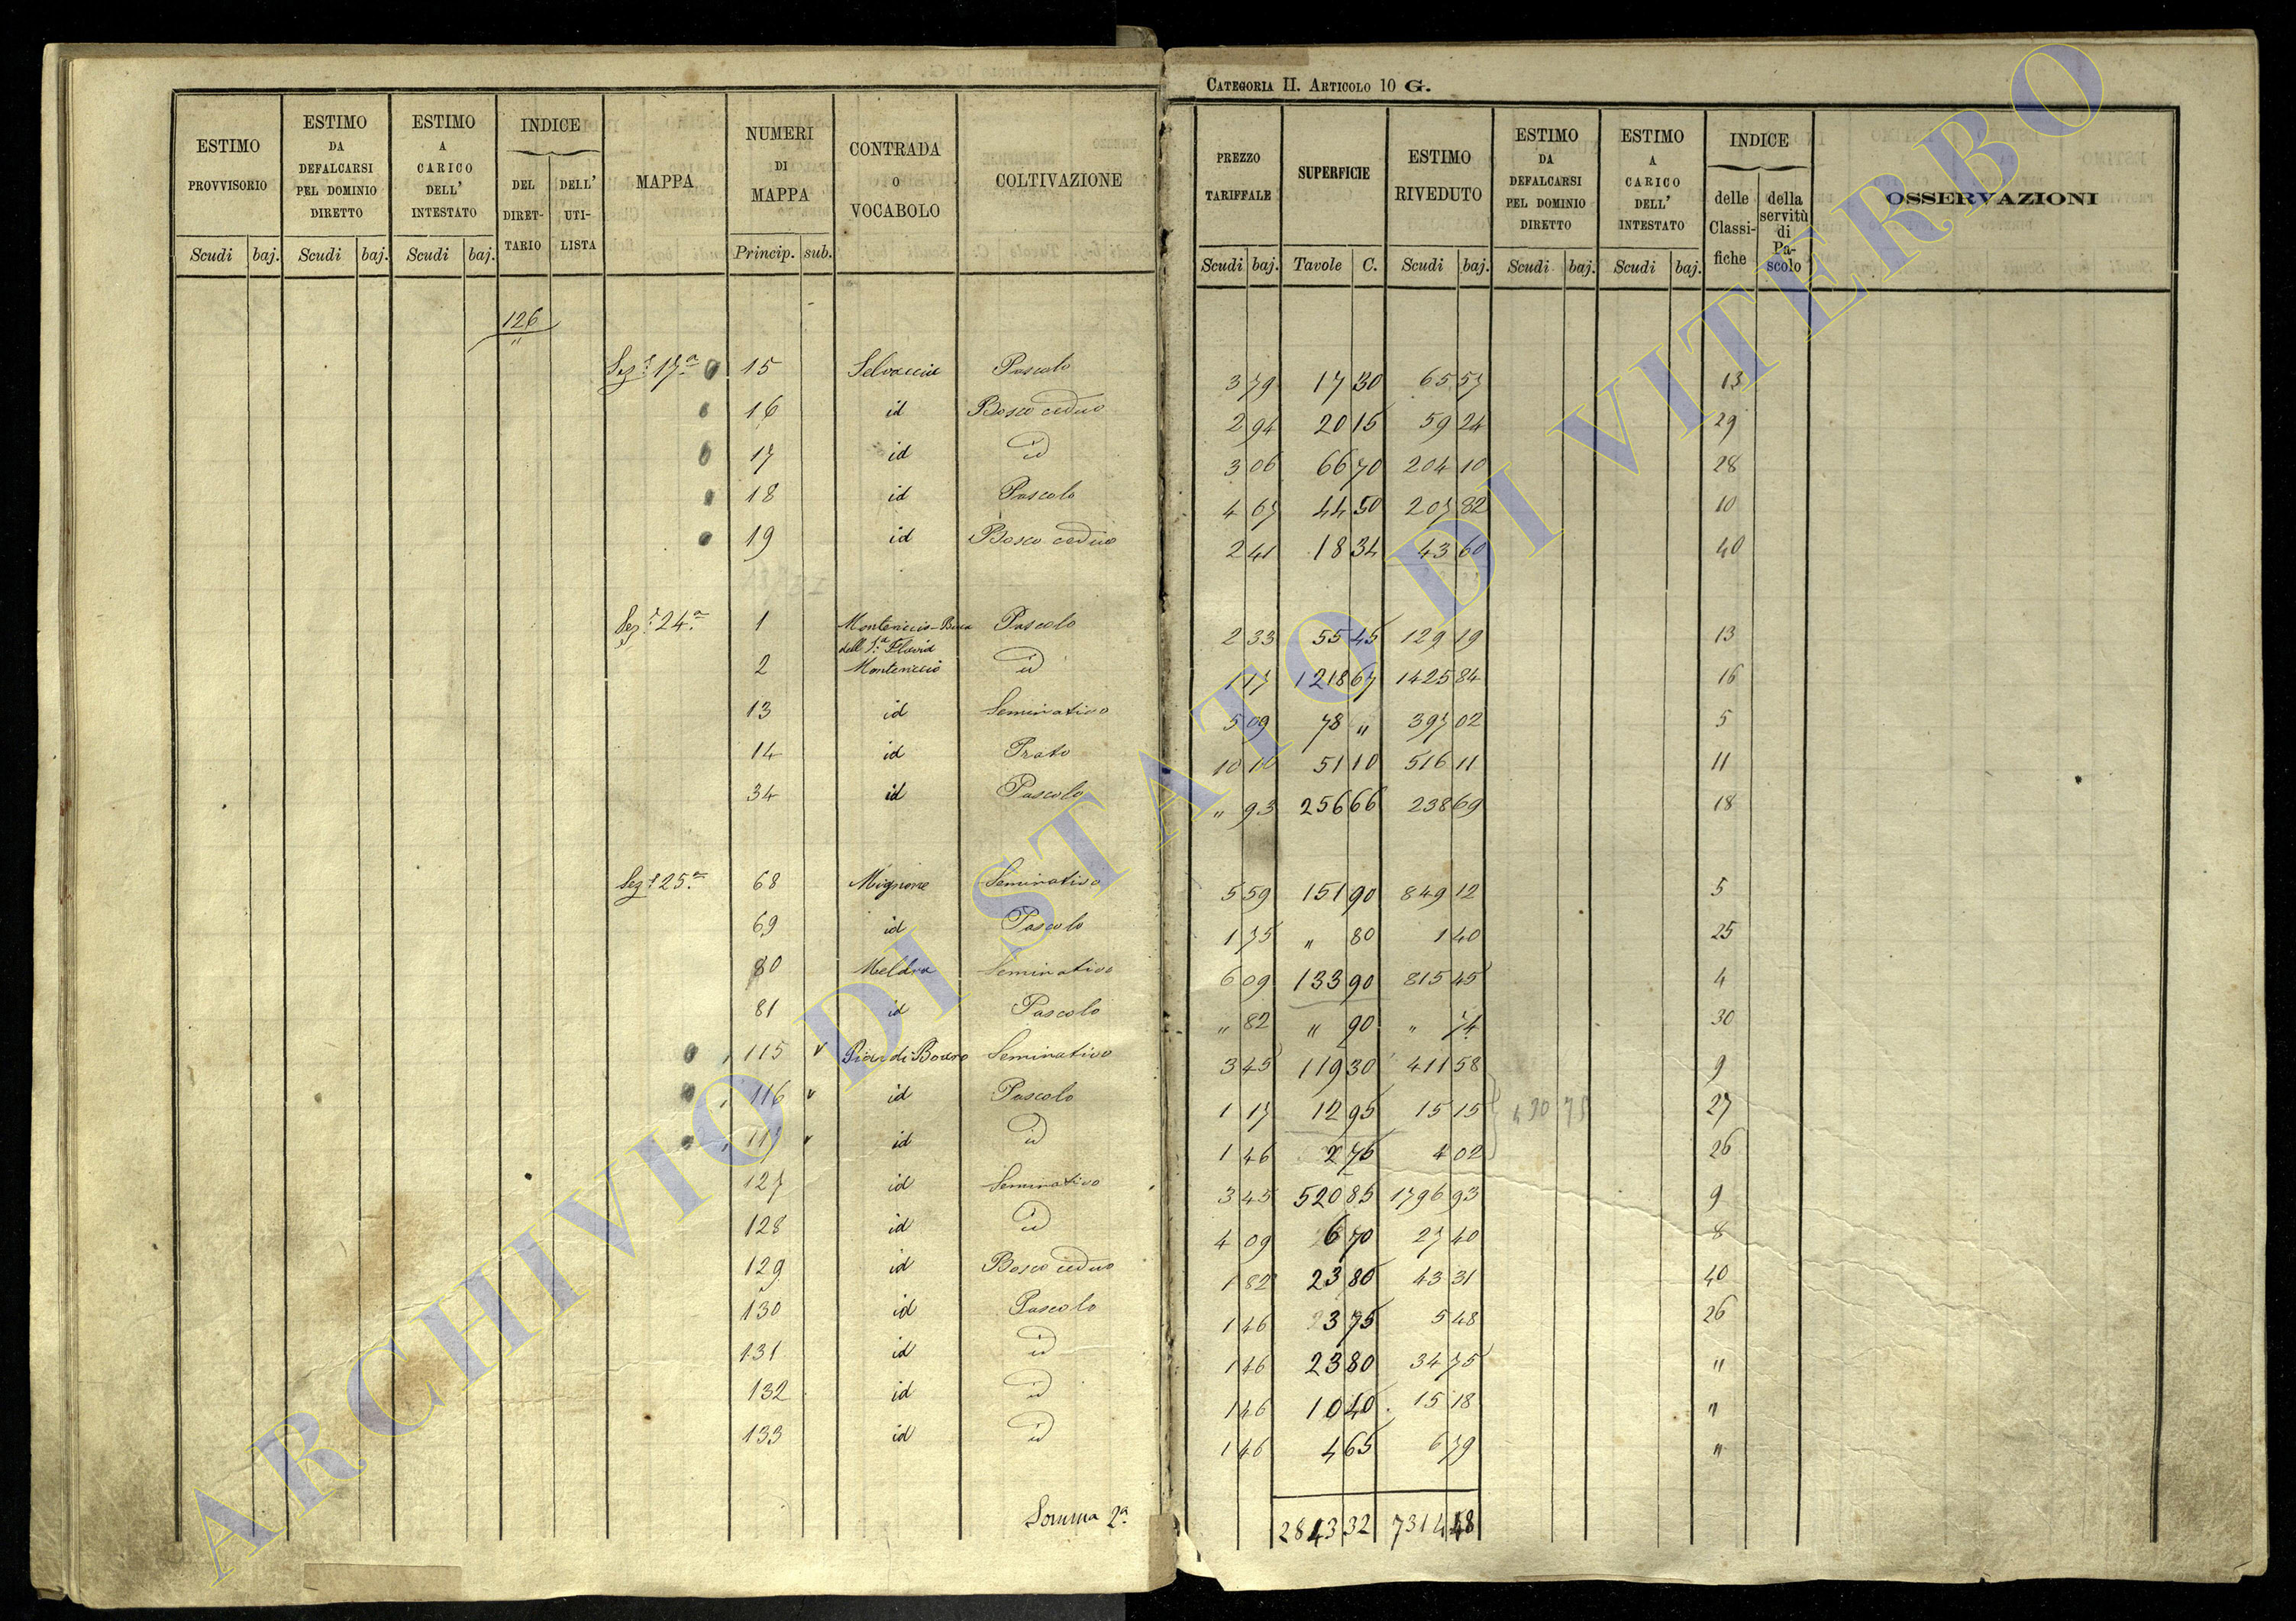 CATEGORIA II. ARTICOLO 10 G.
ESTIMO PROVVISORIO | ESTIMO DA DEFALCARSI PEL DOMINIO DIRETTO | ESTIMO A CARICO DELL' INTESTATO | INDICE DEL DIRETTARIO | DELL' UTILISTA | MAPPA | NUMERI DI MAPPA | CONTRADA O VOCABOLO | COLTIVAZIONE | PREZZO TARIFFALE | SUPERFICIE | ESTIMO RIVEDUTO | ESTIMO DA DEFALCARSI PEL DOMINIO DIRETTO | ESTIMO A CARICO DELL' INTESTATO | INDICE delle Classifiche | della servitù di Pascolo | OSSERVAZIONI
Scudi baj. | Scudi baj. | Scudi baj. | Princip. sub. | Scudi baj. | Tavole C. | Scudi baj. | Scudi baj. | Scudi baj.
126
"
Sez.e 17a 15 Selvaccia Pascolo 3 79 17 30 65 57 13
16 id Bosco ceduo 2 94 20 15 59 24 29
17 id id 3 06 66 70 204 10 28
18 id Pascolo 4 67 44 50 207 82 10
19 id Bosco ceduo 2 41 18 34 43 60 40
Sez.e 24a 1 Montericcio-Buca dell S.a Flavia Pascolo 2 33 55 45 129 19 13
2 Montericcio id 1 17 1218 67 1425 84 16
13 id Seminativo 5 09 78 " 397 02 5
14 id Prato 10 10 51 10 516 11 11
34 id Pascolo " 93 256 66 238 69 18
Sez.e 25a 68 Mignone Seminativo 5 59 151 90 849 12 5
69 id Pascolo 1 75 " 80 1 40 25
80 Meldra Seminativo 6 09 133 90 815 45 4
81 id Pascolo " 82 " 90 " 74 30
115 v Pian di Bovaro Seminativo 3 45 119 30 411 58 9
116 v id Pascolo 1 17 12 95 15 15 27
117 v id id 1 46 2 76 4 02 26
430 75
127 id Seminativo 3 45 520 85 1796 93 9
128 id id 4 09 6 70 27 40 8
129 id Bosco ceduo 1 82 23 80 43 31 40
130 id Pascolo 1 46 3 75 5 48 26
131 id id 1 46 23 80 34 75 "
132 id id 1 46 10 40 15 18 "
133 id id 1 46 4 65 6 79 "
Somma 2a 2843 32 7314 48
ARCHIVIO DI STATO DI VITERBO